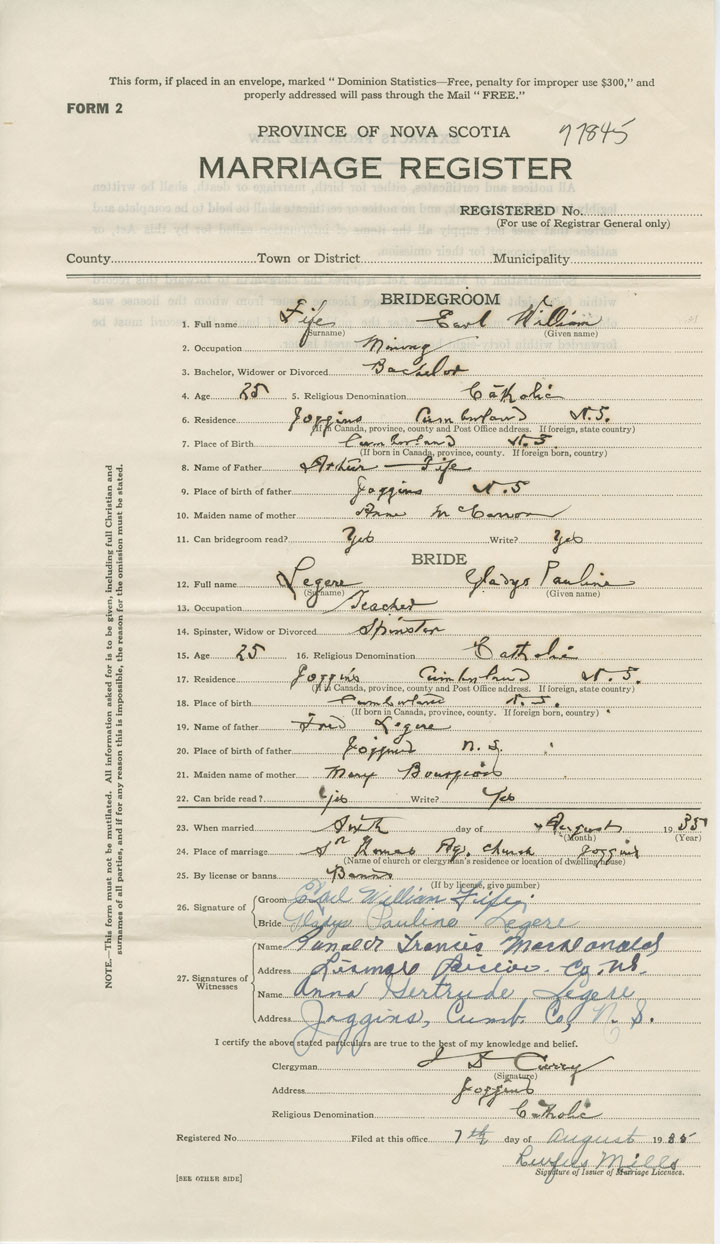 This form, if placed in an envelope, marked “ Dominion Statistics—Free, penalty for improper use $300,” and
properly addressed will pass through the Mail “ FREE.”
FORM 2
PROVINCE OF NOVA SCOTIA 77845
MARRIAGE REGISTER
REGISTERED No.
(For use of Registrar General only)
County Town or District Municipality
BRIDEGROOM
1. Full name Fife Earl William
(Surname) (Given name)
2. Occupation Mining
3. Bachelor, Widower or Divorced Bachelor
4. Age 25 5. Religious Denomination Catholic
6. Residence Joggins Cumberland N.S.
(If in Canada, province, county and Post Office address. If foreign, state country)
7. Place of Birth Cumberland N.S.
(If born in Canada, province, county. If foreign born, country)
8. Name of Father Arthur Fife
9. Place of birth of father Joggins N.S
10. Maiden name of mother Anne McCarron
11. Can bridegroom read? Yes Write? Yes
BRIDE
12. Full name Legere Gladys Pauline
(Surname) (Given name)
13. Occupation Teacher
14. Spinster, Widow or Divorced Spinster
15. Age 25 16. Religious Denomination Catholic
17. Residence Joggins Cumberland N.S.
(If in Canada, province, county and Post Office address. If foreign, state country)
18. Place of birth Cumberland N.S.
(If born in Canada, province, county. If foreign born, country)
19. Name of father Fred Legere
20. Place of birth of father Joggins N.S.
21. Maiden name of mother Mary Bourgeois
22. Can bride read? Yes Write? Yes
23. When married Sixth day of August 1935
(Month) (Year)
24. Place of marriage St Thomas Aq. Church Joggins
(Name of church or clergyman's residence or location of dwelling house)
25. By license or banns Banns
(If by license, give number)
26. Signature of Groom Earl William Fife
Bride Gladys Pauline Legere
27. Signatures of Witnesses
Name Ranald Francis MacDonald
Address Lismore Pictou Co. N.S.
Name Anna Gertrude Legere
Address Joggins, Cumb. Co, N.S.
I certify the above stated particulars are true to the best of my knowledge and belief.
Clergyman Curry
(Signature)
Address Joggins
Religious Denomination Catholic
Registered No. Filed at this office 7th day of August 1935
Rufus Mills
Signature of Issuer of Marriage Licenses.
[SEE OTHER SIDE]
NOTE.—This form must not be mutilated. All information asked for is to be given, including full Christian and
surnames of all parties, and if for any reason this is impossible, the reason for the omission must be stated.